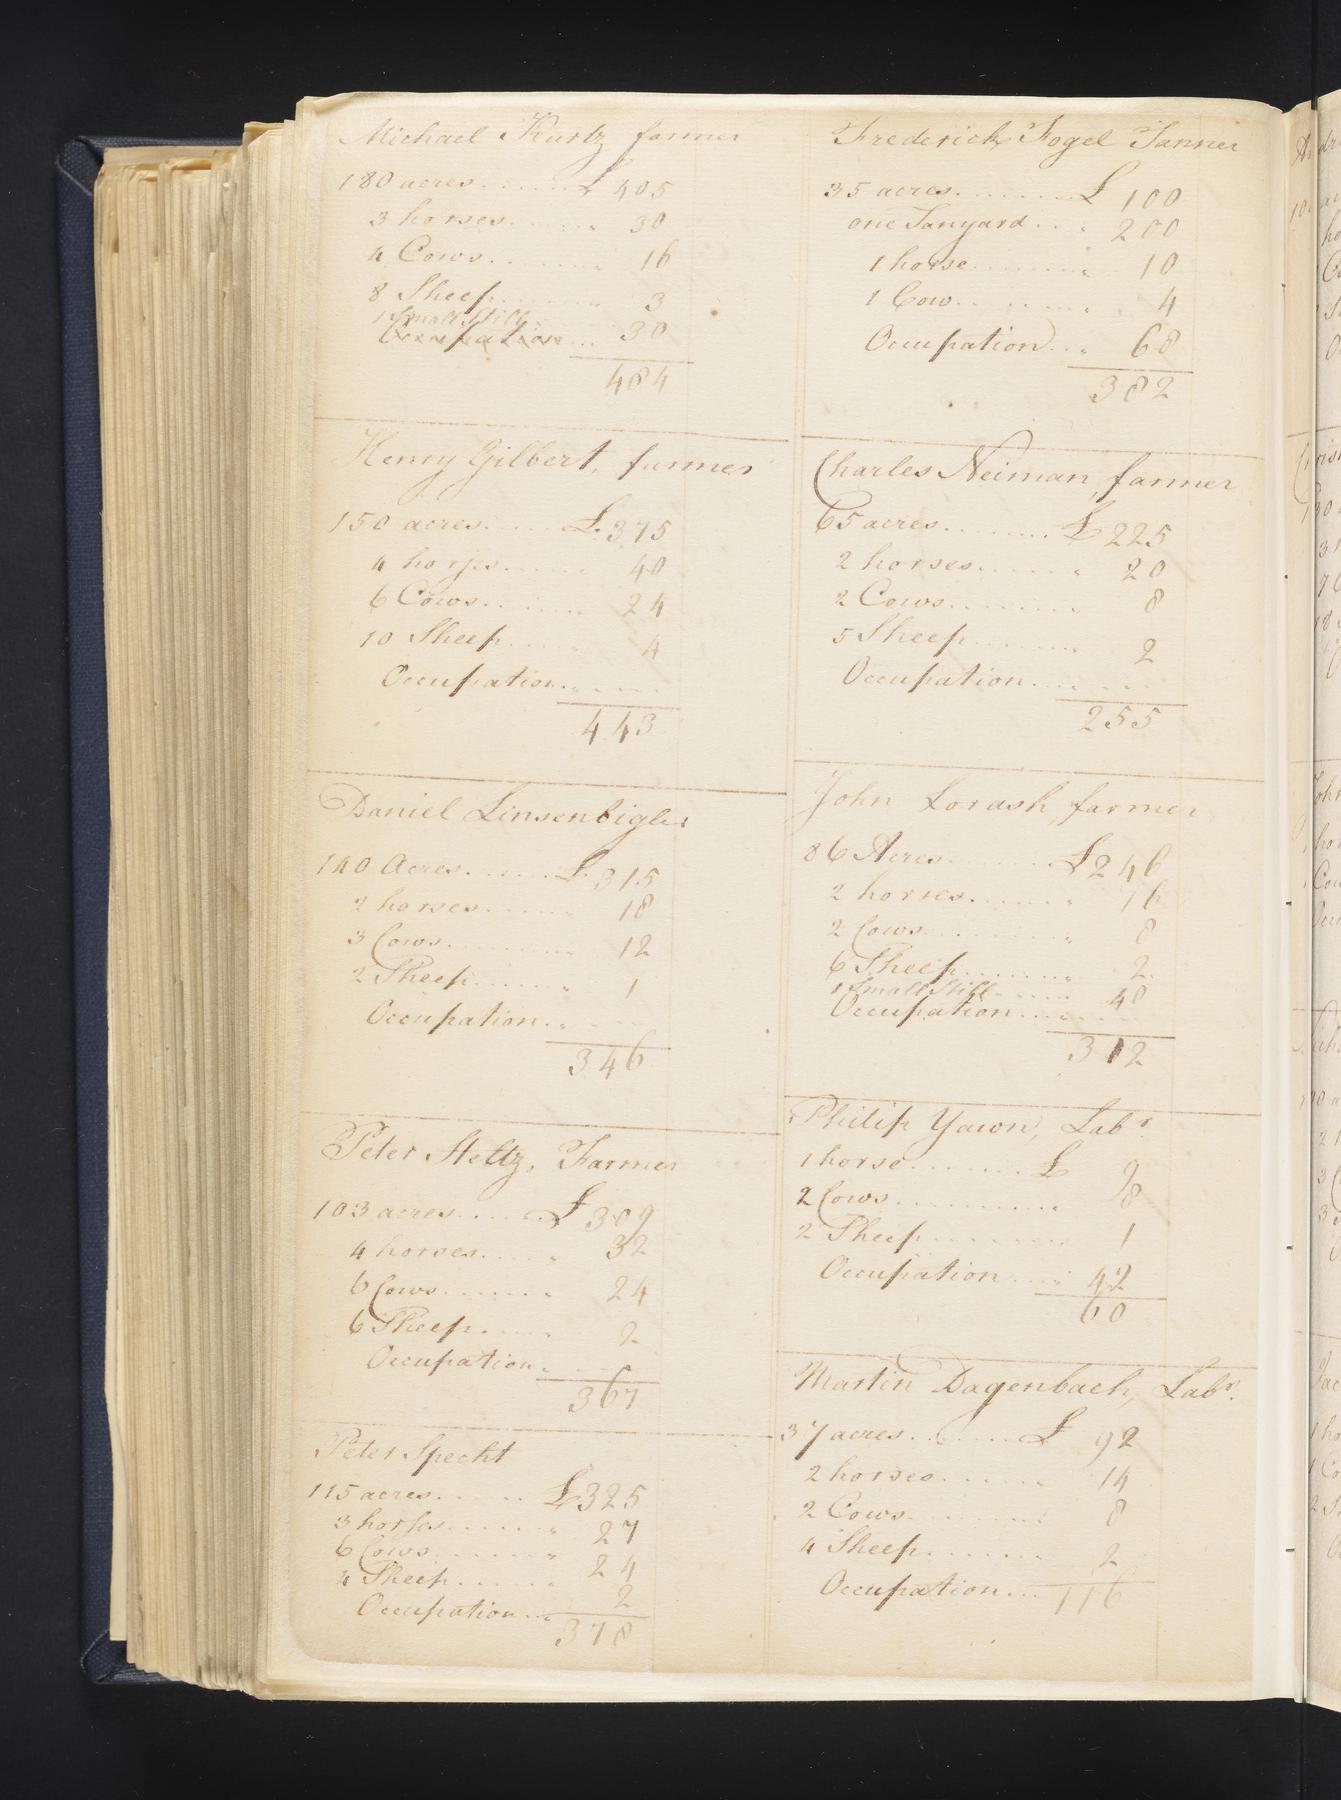 Michael Kurtz farmer
180 acres......£ 405
3 horses....... 30
4 Cows....... 16
8 Sheep....... 3
1 Small Still
Occupation... 30
484
Henry Gilbert, farmer
150 acres......£ 375
4 horses....... 40
6 Cows....... 24
10 Sheep..... 4
Occupation.....
443
Daniel Linsenbigler
140 Acres......£ 315
2 horses....... 18
3 Cows....... 12
2 Sheep....... 1
Occupation.....
346
Peter Steltz, Farmer
103 acres.....£ 309
4 horses...... 32
6 Cows....... 24
6 Sheep..... 2
Occupation...
367
Peter Specht
115 acres......£325
3 horses....... 27
6 Cows....... 24
4 Sheep....... 2
Occupation...
378
Frederick Fogel Tanner
35 acres.......£ 100
one Tanyard... 200
1 horse....... 10
1 Cow....... 4
Occupation... 68
382
Charles Neiman, farmer
65 acres........£ 225
2 horses...... 20
2 Cows........ 8
5 Sheep....... 2
Occupation.....
255
John Lorash, farmer
86 Acres.......£246
2 horses....... 16
2 Cows........ 8
6 Sheep....... 2
1 Small Still..... 40
Occupation.....
312
Philip Yawn, Labr.
1 horse.......£ 9
2 Cows.......... 8
2 Sheep........ 1
Occupation.... 42
60
Martin Dagenbach, Labr.
37 acres.......£ 92
2 horses...... 14
2 Cows....... 8
4 Sheep....... 2
Occupation...
116